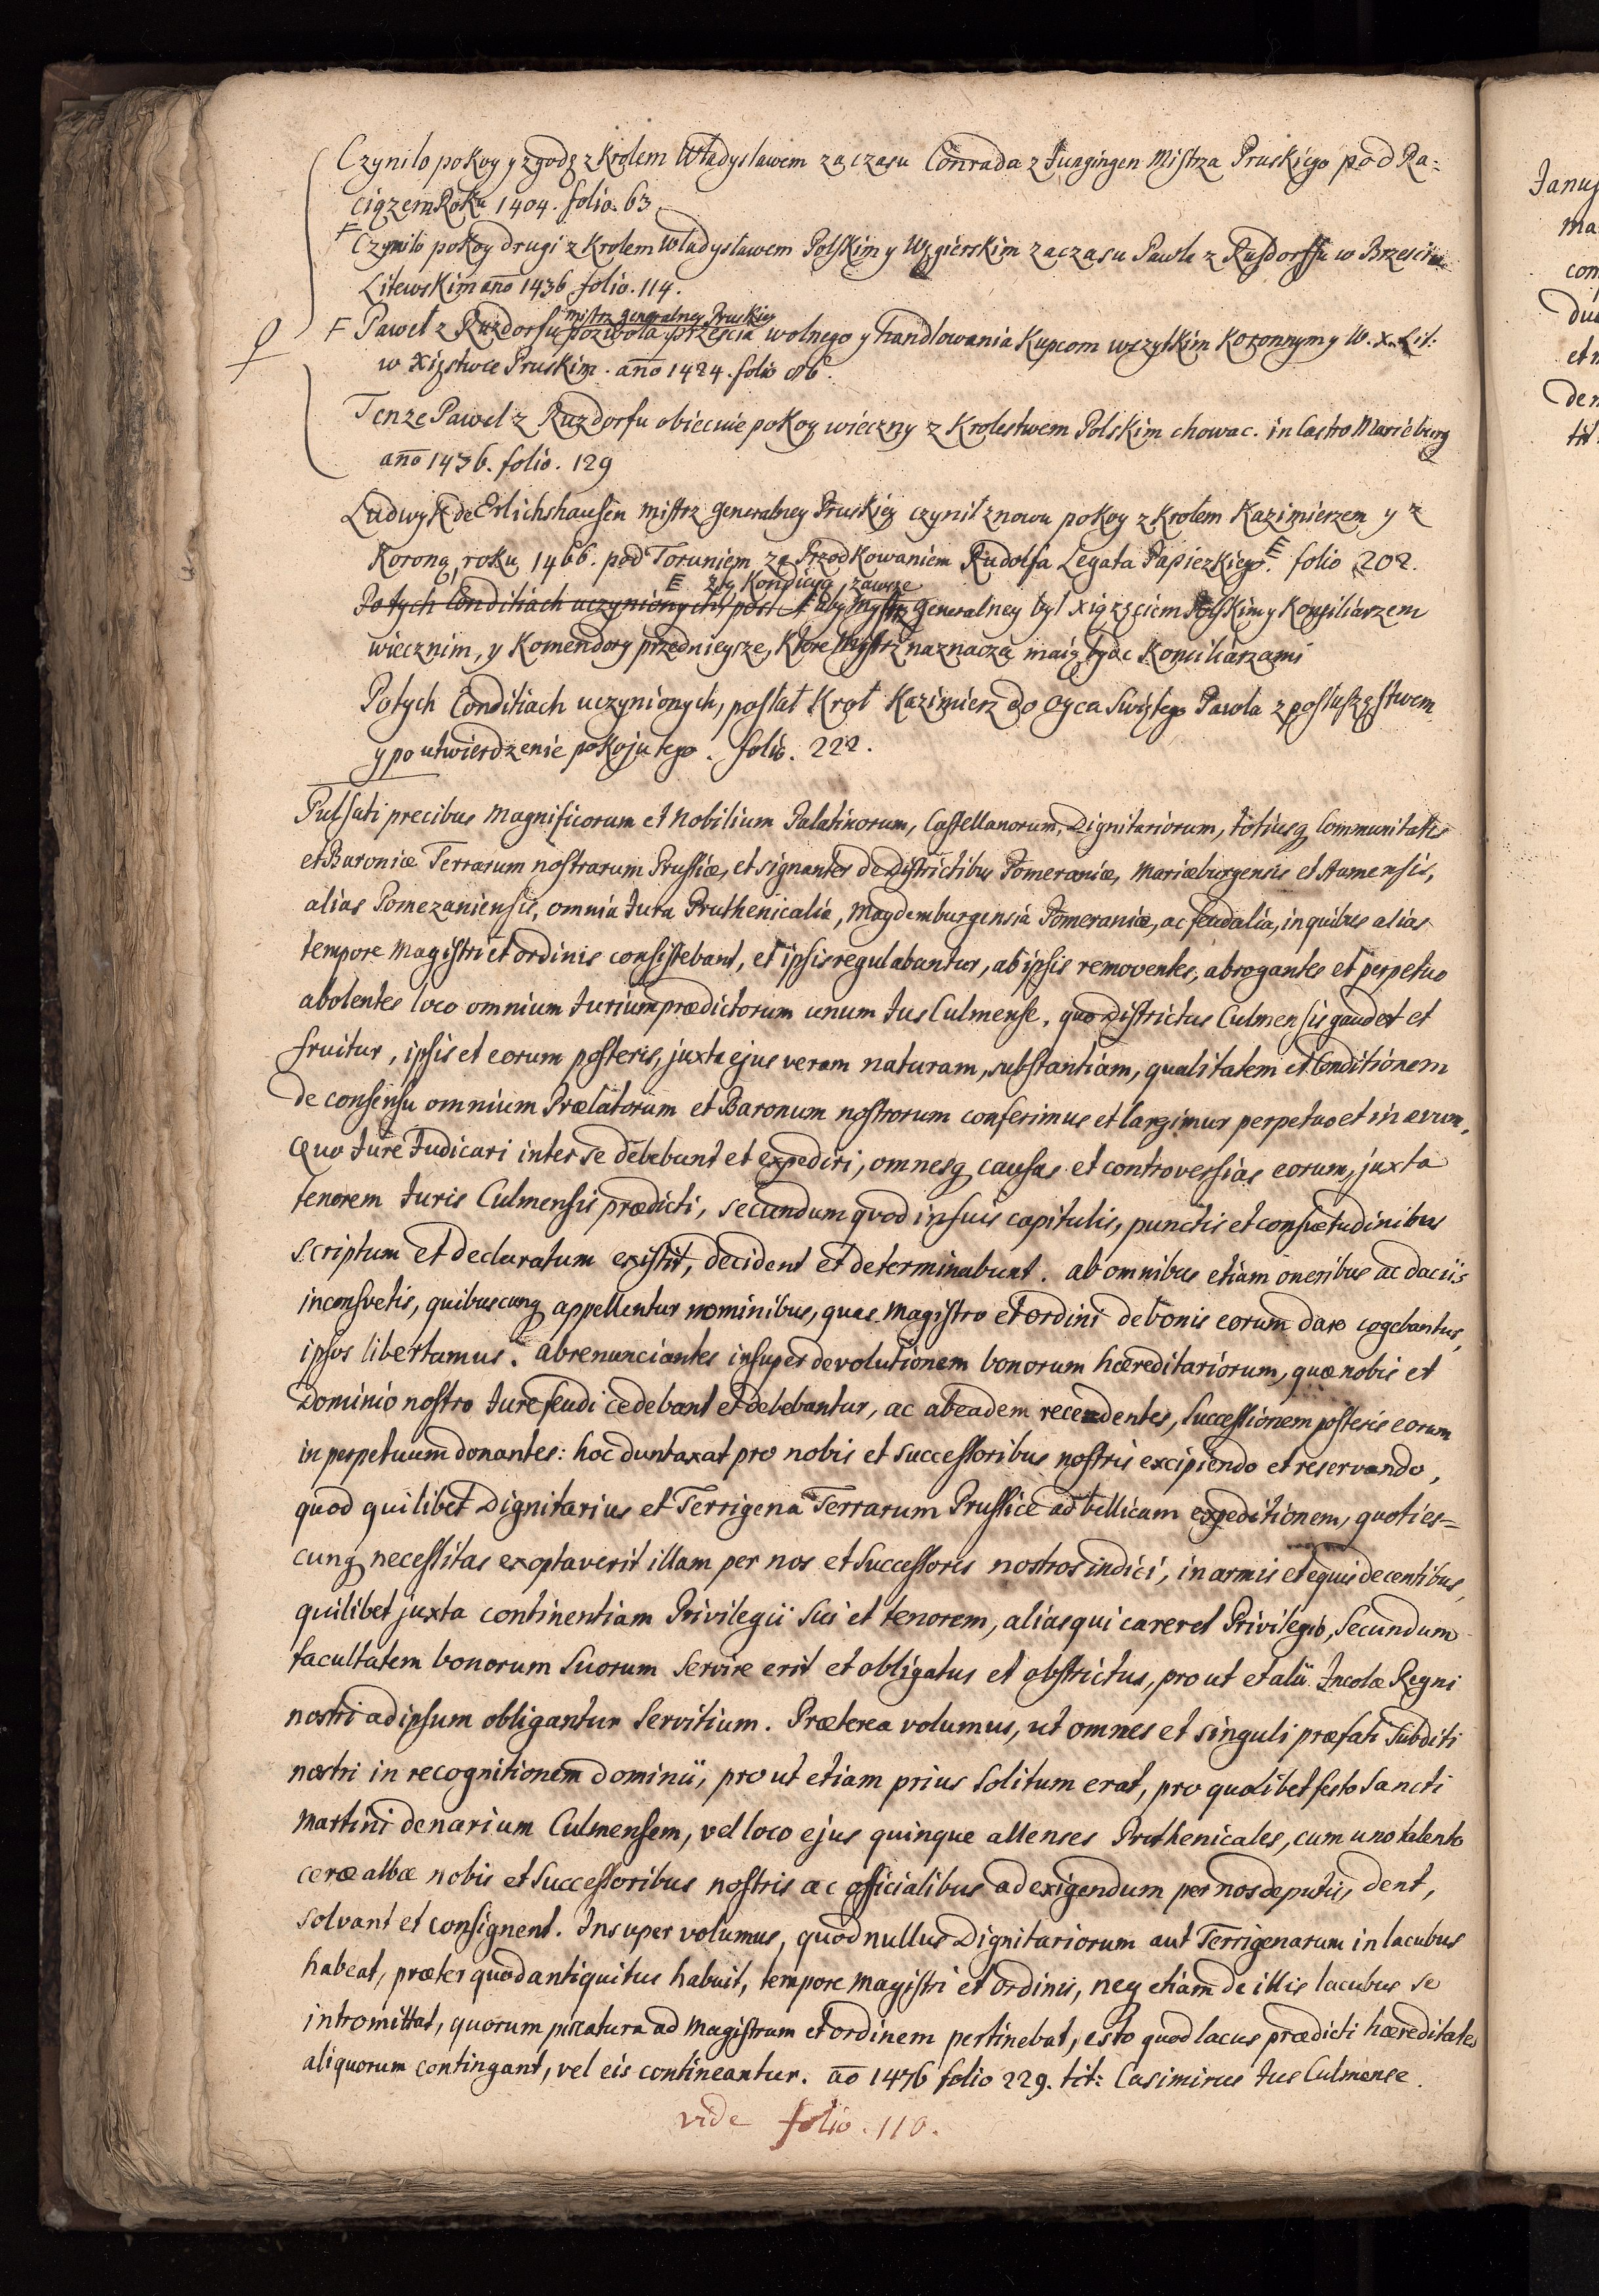 Czynilo pokoy y zgodę z Krolem Władysławem za czasu Conrada z Jungingen Mistrza Pruskiego pod Ra=
ciązem Roku 1404. folio. 63
F Czynilo pokoy drugi z Krolem Władysławem Polskim y Węgierskim za czasu Pawła z Rusdorffu w Brzesciu
Litewskim año 1436 folio. 114.
mistrz generalney Pruskiey
F Paweł z Ruzdorfu pozwola przescia wolnego y handlowania Kupcom wszytkim Koronnym y W. X. Lit:
w Xięstwce Pruskim. año 1424. folio 86.
Tenze Pawel z Ruzdorfu obiecuie pokoy wieczny z Krolestwem Polskim chowac. in Castro Marieburg
año 1436. folio. 129
Ludwyk de Erlichshausen mistrz generalney Pruskiey czynił znowu pokoy z Krolem Kazimierzem y z
Koroną, roku 1466. pod Toruniem za Przodkowaniem Rudolfa Legata Papiezkiego. E folio 202.
E z tą Kondicyą, zawsze
Po tych Conditiach uczynionych, posl aby Mystrz generalney był xiązęciem Polskim y Konsiliarzem
wiecznim, y Komendory przednieysze, Ktore Mystrz naznacza maią bydz Konciliarzami
Po tych Conditiach uczynionych, posłał Krol Kazimierz do Oyca Swiętego Pawla z posłuszęstwem
y po utwierdzenie pokoju tego. folio. 222.
Pulsati precibus Magnificorum et Nobilium Palatinorum, Castellanorum, Dignitariorum, totiusq Communitatis
et Baroniæ Terrarum nostrarum Prussiæ, et signanter de Districtibus Pomeraniæ, Mariæburgensis et Stumensis,
alias Pomezaniensis, omnia Jura Pruthenicalia, Magdemburgensia Pomeraniæ, ac feudalia, in quibus alias
tempore Magistri et ordinis consistebant, et ipsis regulabantur, ab ipsis removentes, abrogantes et perpetuo
abolentes loco omnium Jurium prædictorum unum Jus Culmense, quo Districtus Culmensis gaudet et
fruitur, ipsis et eorum posteris, juxta ejus veram naturam, substantiam, qualitatem et Conditionem
de consensu omnium Prælatorum et Baronum nostrorum conferimus et largimur perpetuo et in ævum,
Quo Jure Judicari inter se debebunt et expediri, omnesq causas et controversias eorum, juxta
tenorem Juris Culmensis prædicti, secundum quod in suis capitulis, punctis et consvetudinibus
scriptum et declaratum existit, decident et determinabunt. ab omnibus etiam oneribus ac daciis
inconsvetis, quibuscunq appellentur nominibus, quas Magistro et Ordini de bonis eorum dare cogebantur,
ipsos libertamus. abrenunciantes insuper devolutionem bonorum hæreditariorum, quæ nobis et
Dominio nostro Jure feudi cedebant et debebantur, ac ab eadem recedentes, Successionem posteris eorum
in perpetuum donantes: hoc duntaxat pro nobis et successoribus nostris excipiendo et reservando,
quod quilibet Dignitarius et Terrigena Terrarum Prussiæ ad bellicam expeditionem, quoties=
cunq necessitas exoptaverit illam per nos et Successores nostros indici, in armis et equis decentibus,
quilibet juxta continentiam Privilegii sui et tenorem, alias qui careret Privilegio, Secundum
facultatem bonorum Suorum Servire erit et obligatus et obstrictus, pro ut et alii Incolæ Regni
nostri ad ipsum obligantur Servitium. Præterea volumus, ut omnes et singuli præfati Subditi
nostri in recognitionem dominii, pro ut etiam prius solitum erat, pro quolibet festo Sancti
Martini denarium Culmensem, vel loco ejus quinque allenses Pruthenicales, cum uno talento
ceræ albæ nobis et Successoribus nostris ac officialibus ad exigendum per nos deputis, dent,
solvant et consignent. Insuper volumus, quod nullus Dignitariorum aut Terrigenarum in lacubus
habeat, præter quod antiquitus habuit, tempore Magistri et Ordinis, neq etiam de illis lacubus se
intromittat, quorum piscatura ad Magistrum et ordinem pertinebat, esto quod lacus prædicti hæreditates
aliquorum contingant, vel eis contineantur. ao 1476 folio 229. tit: Casimirus Jus Culmense.
vide folio. 110.